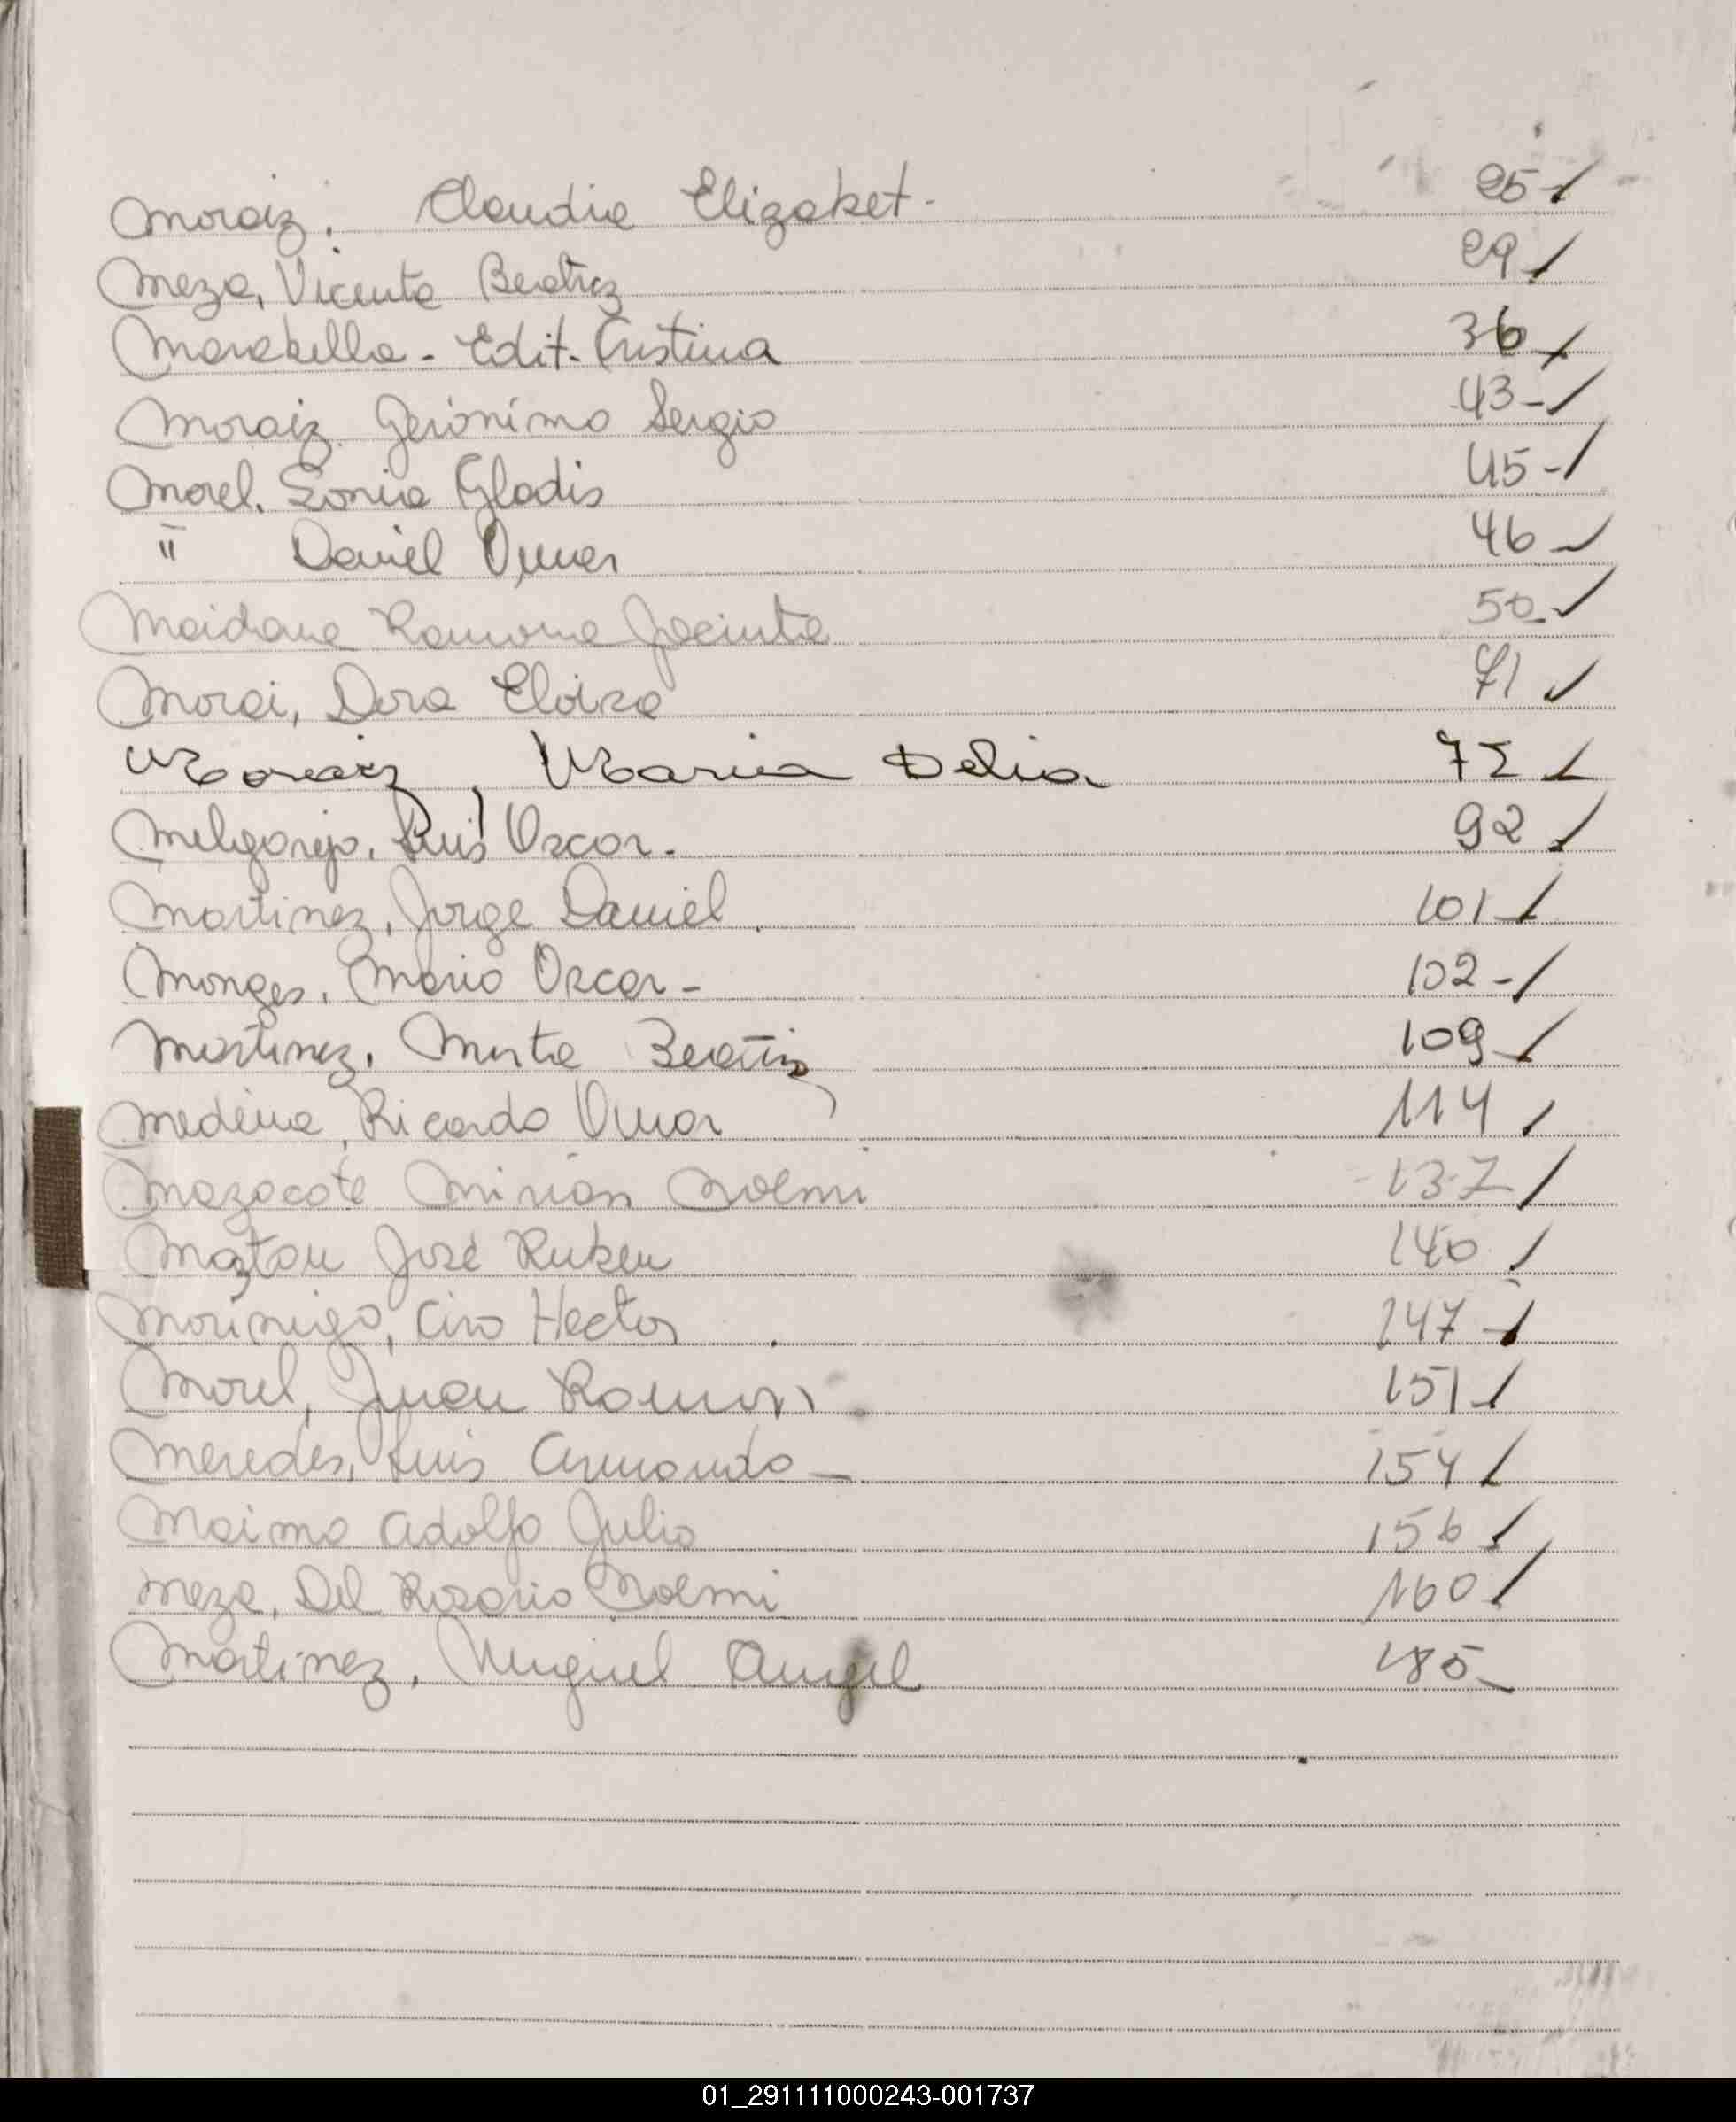 Moraiz, Claudia Elizabet - 25 -
Meza, Vicenta Beatriz 29
Marabella - Edit - Cristina 36
Moraiz Gerónimo Sergio 43 -
Morel. Sonia Gladis 45 -
" Daniel Omar 46
Maidana Ramona Jacinta 50 -
Morai, Dora Eloiza 71
Moraiz, Maria Delia 72
Melgarejo, Luis Oscar - 92
Martinez, Jorge Daniel. 101
Monges, Mario Oscar - 102 -
Martinez, Mirta Beatriz 109
Medina, Ricardo Omar 114
Mazacote Mirian Noemi 137
José Ruben 140
Morinigo, Ciro Hector 147 -
Morel, Juan Ramon 151
Meredes, Luis Armando - 154
Maima Adolfo Julio 156
Meza, Del Rosario Noemi 160
Martinez, Miguel Angel 185
01_291111000243-001737